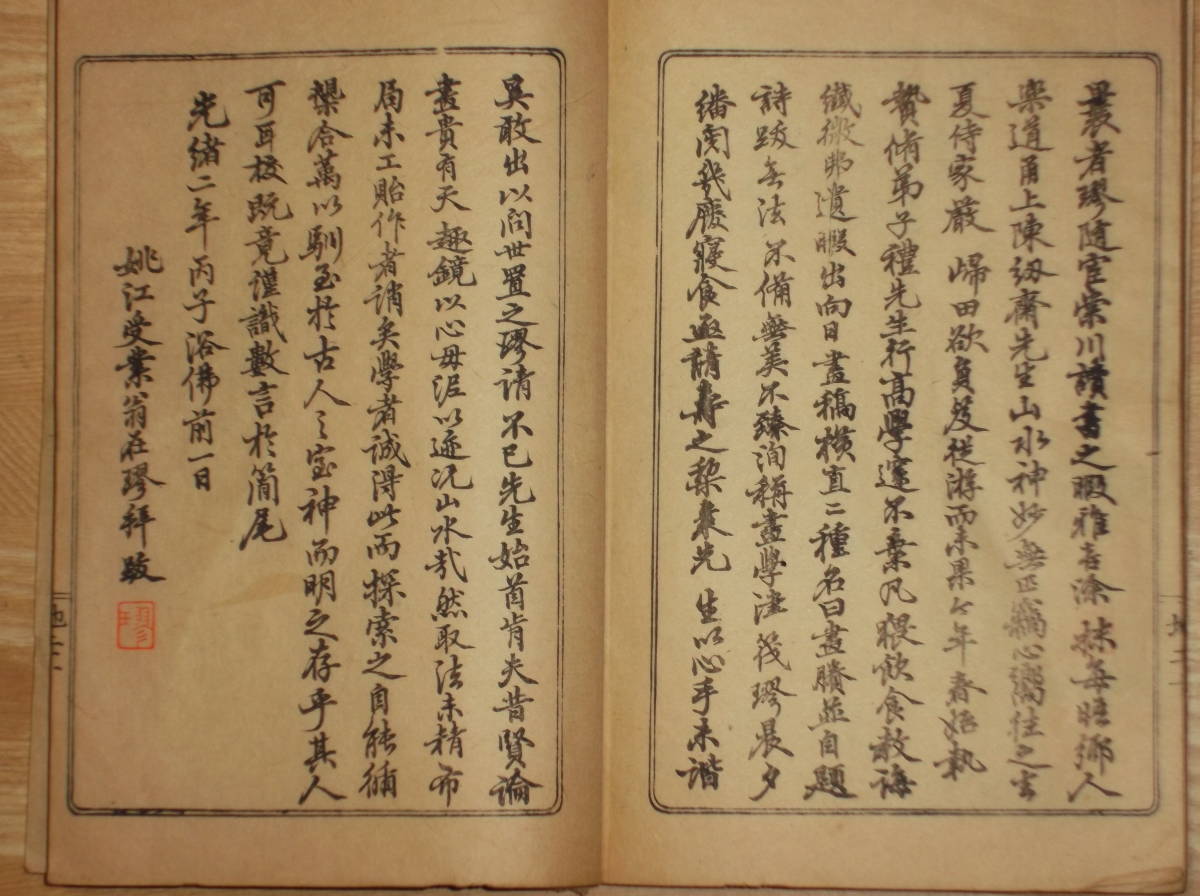 曩者璆隨宦崇川讀書之暇雅喜涂抹每晤鄉人
樂道甬上陳紉齋先生山水神妙無匹竊心嚮往之去
夏侍家嚴歸田欲負笈從游而未果今年春始執
贄脩弟子禮先生行高學邃不棄凡猥飲食教誨
纖微弗遺暇出向日畫稿橫直二種名曰畫賸並自題
詩跋無法不備無美不臻洵稱畫學津筏璆晨夕
繙閱幾廢寢食亟請壽之棃棗先生以心手未諧
奚敢出以問世置之璆請不已先生始首肯夫昔賢論
畫貴有天趣鏡以心毋泥以迹況山水哉然取法未精布
局未工貽作者誚矣學者誠得此而探索之自能彌
櫽合萬以馴至於古人之室神而明之存乎其人
可耳校既竟謹識數言於簡尾
光緒二年丙子浴佛前一日
姚江受業翁在璆拜跋
璆
地